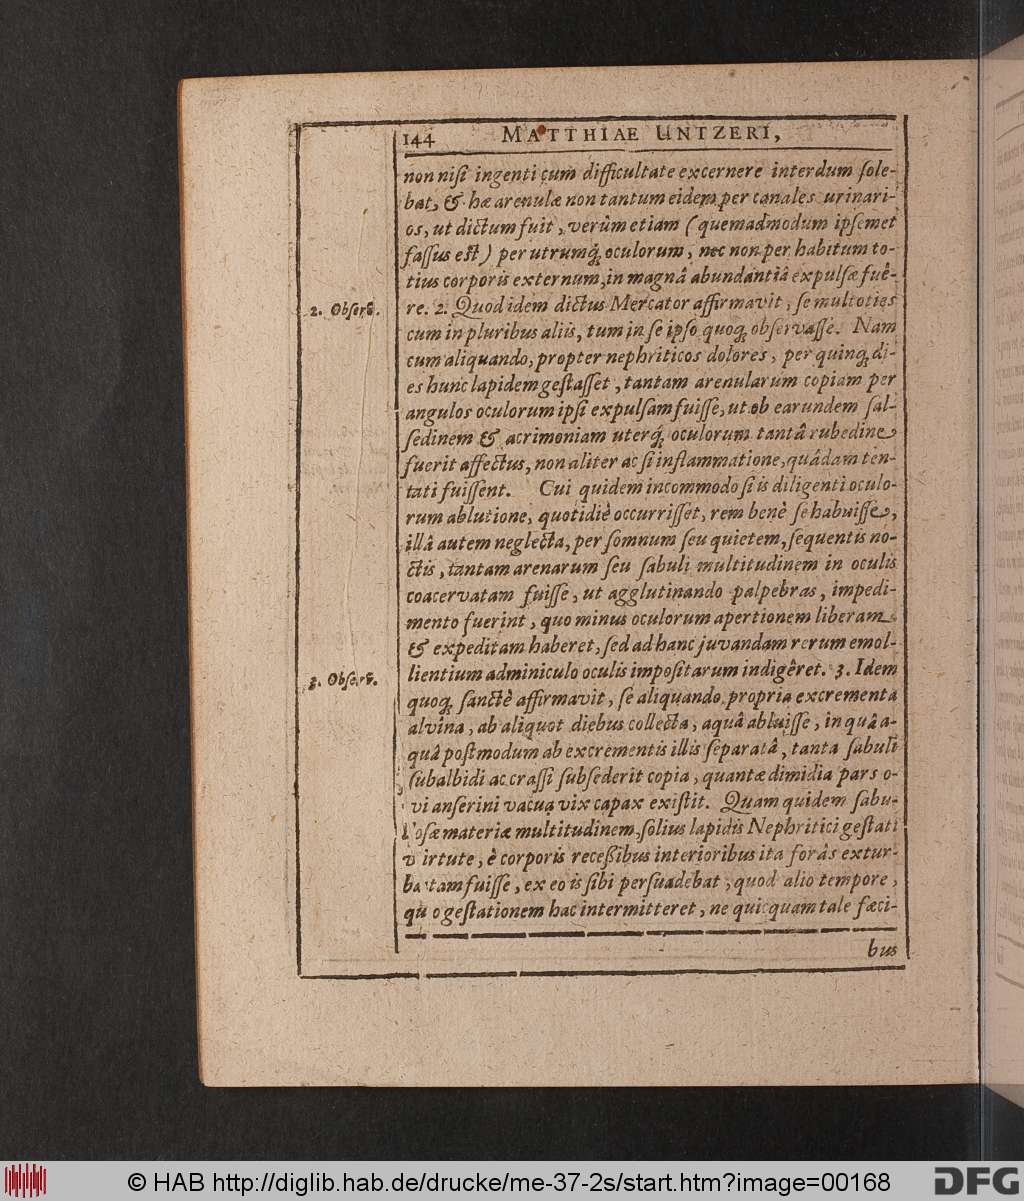 144 MATTHIAE UNTZERI,
non nisi ingenti cum difficultate excernere interdum sole-
bat, & hæ arenulæ non tantum eidem per canales urinari-
os, ut dictum fuit, verùm etiam (quemadmodum ipsemet
fassus est) per utrumq; oculorum, nec non per habitum to-
tius corporis externum, in magnâ abundantiâ expulsæ fuê-
2. Observ.
re. 2. Quod idem dictus Mercator affirmavit, se multoties
cum in pluribus aliis, tum in se ipso quoq; observasse. Nam
cum aliquando, propter nephriticos dolores, per quinq; di-
es hunc lapidem gestasset, tantam arenularum copiam per
angulos oculorum ipsi expulsam fuisse, ut ob earundem sal-
sedinem & acrimoniam uterq; oculorum tantâ rubedine
fuerit affectus, non aliter ac si inflammatione, quâdam ten-
tati fuissent. Cui quidem incommodo si is diligenti oculo-
rum ablutione, quotidiè occurrisset, rem benè se habuisse,
illâ autem neglecta, per somnum seu quietem, sequentis no-
ctis, tantam arenarum seu sabuli multitudinem in oculis
coacervatam fuisse, ut agglutinando palpebras, impedi-
mento fuerint, quo minus oculorum apertionem liberam
& expeditam haberet, sed ad hanc juvandam rerum emol-
3. Observ.
lientium adminiculo oculis impositarum indigêret. 3. Idem
quoq; sanctè affirmavit, se aliquando propria excrementa
alvina, ab aliquot diebus collecta, aquâ abluisse, in quâ a-
quâ postmodum ab excrementis illis separatâ, tanta sabuli
subalbidi ac crassi subsederit copia, quantæ dimidia pars o-
vi anserini vacua vix capax existit. Quam quidem sabu-
losæ materiæ multitudinem, solius lapidis Nephritici gestati
virtute, è corporis recessibus interioribus ita foràs extur-
batam fuisse, ex eo is sibi persuadebat, quod alio tempore,
quo gestationem hac intermitteret, ne quicquam tale fæci-
bus
© HAB http://diglib.hab.de/drucke/me-37-2s/start.htm?image=00168
DFG